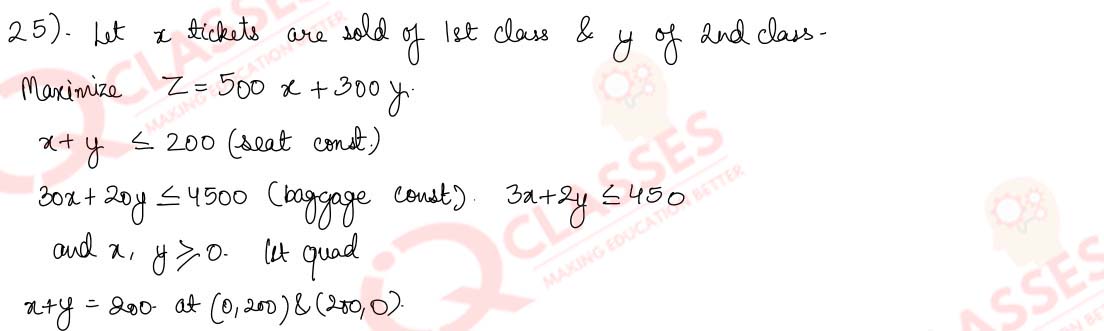 25). Let x tickets are sold of 1st class & y of 2nd class -
Maximize Z = 500 x + 300 y.
x + y ≤ 200 (seat const.)
30x + 20y ≤ 4500 (baggage const). 3x + 2y ≤ 450
and x, y ≥ 0. 1st quad
x + y = 200. at (0, 200) & (200, 0).
IQ CLASSES
MAKING EDUCATION BETTER
IQ CLASSES
MAKING EDUCATION BETTER
CLASSES